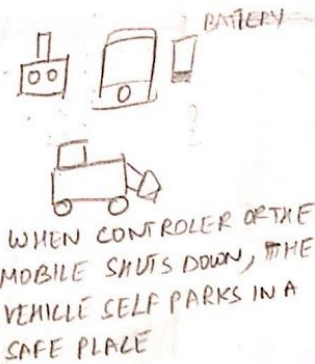 BATTERY
WHEN CONTROLER OR THE
MOBILE SHUTS DOWN, THE
VEHICLE SELF PARKS IN A
SAFE PLACE